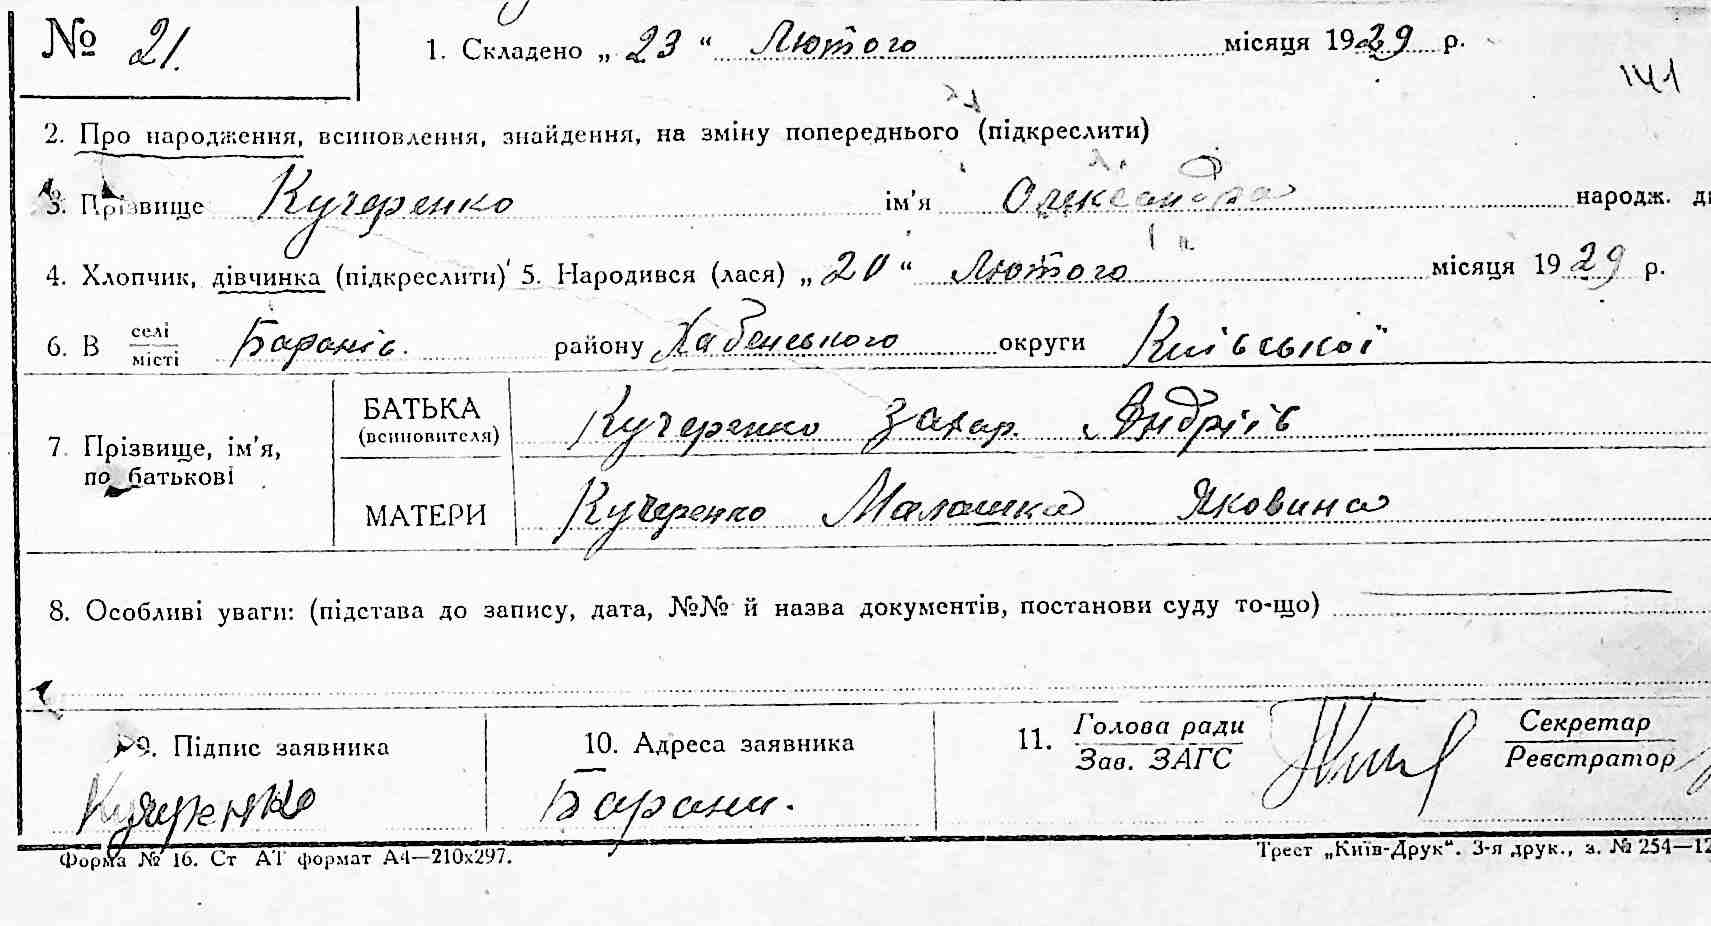 № 21. 1. Складено „ 23 “ Лютого місяця 1929 р.
141
2. Про народження, всиновлення, знайдення, на зміну попереднього (підкреслити)
3. Прізвище Кучеренко ім'я Олександра народж.
4. Хлопчик, дівчинка (підкреслити) 5. Народився (лася) „ 20 “ Лютого місяця 1929 р.
6. В селі/місті Баранів. району Хабенського округи Київської
7. Прізвище, ім'я, по батькові
БАТЬКА (всиновителя) Кучеренко Захар. Андріїв
МАТЕРИ Кучеренко Малашка Яковина
8. Особливі уваги: (підстава до запису, дата, №№ й назва документів, постанови суду то-що)
9. Підпис заявника 10. Адреса заявника 11. Голова ради/Зав. ЗАГС Секретар/Реєстратор
Кучеренко Барани.
Форма № 16. Ст АТ формат А4—210х297. Трест „Київ-Друк“. 3-я друк., з. № 254—12